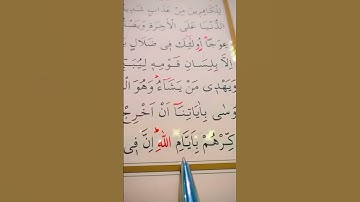 لِلْكَافِر۪ينَ مِنْ عَذَابٍ شَد۪يدٍ
الدُّنْيَا عَلَى الْاٰخِرَةِ وَيَصُدُّ
عِوَجًاۜ اُو۬لٰٓئِكَ ف۪ي ضَلَالٍ
اِلَّا بِلِسَانِ قَوْمِه۪ لِيُبَيِّ
وَيَهْد۪ي مَنْ يَشَٓاءُۜ وَهُوَ الْ
وسٰى بِاٰيَاتِنَٓا اَنْ اَخْرِجْ
كِّرْهُمْ بِاَيَّامِ اللّٰهِۜ اِنَّ ف۪ي